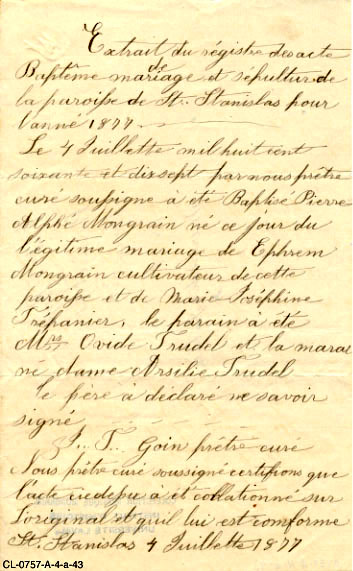 Extrait du régistre des acte
de
Baptême mariage et sépultur de
la paroisse de St. Stanislas pour
l'anné 1877.
Le 4 Juillette mil huit cent
soixante et dix sept par nous prêtre
curé soussigne à été Baptisé Pierre
Alphé Mongrain né ce jour du
légitime mariage de Ephrem
Mongrain cultivateur de cette
paroisse et de Marie Joséphine
Trépanier, le parain à été
Mr Ovide Trudel et la marai
ne dame Arsilie Trudel
le père à déclaré ne savoir
signé
F. T. Goin prêtre curé
Nous prêtre curé soussigné certifions que
l'acte ci à et collationné sur
l'original et quil lui est comforme
St. Stanislas 4 Juillette 1877
CL-0757-A-4-a-43